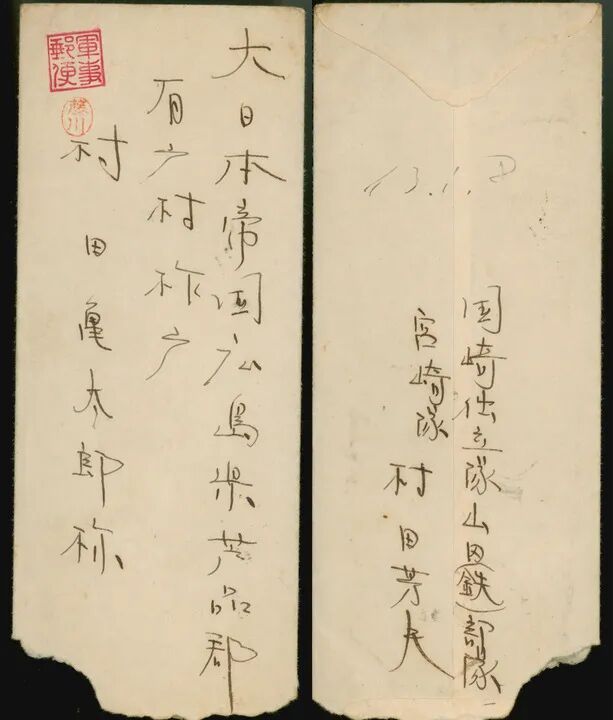 軍事
郵便
大日本帝国広島県芦品郡
有广村柞广
村田亀太郎様
国崎独立隊山田(鉄)部隊
宮崎隊 村田芳夫